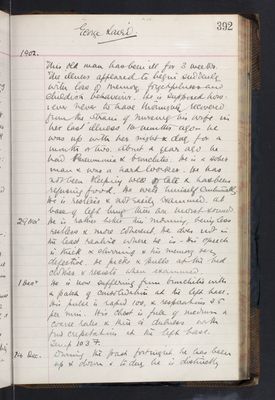 392
George
1902.
This old man has been ill for 3 weeks.
The illness appeared to begin suddenly
with loss of memory, forgetfulness and
childish behaviour. He is supposed how-
ever never to have thoroughly recovered
from the strain of nursing his wife in
her last illness 10 months ago. he
was up with her night & day for
months or two. About a year ago he
had Pneumonia & bronchitis. He is a sober
man & was a hard worker. He has
not been sleeping well of late & has been
refusing food. He wets himself continually
He is restless & not easily examined. at
base of left lung there are
29 Nov He is rather better this morning, being less
restless & more coherent. He does not in
the least realise where he is. His speech
is thick & slurring & his memory very
defective. He picks & pulls at the bed
clothes & resists when examined.
1 Dec He is now suffering from bronchitis with
a patch of consolidation at the left base.
His pulse is rapid 100, & respirations
per min. His chest is full of medium &
coarse rales & there is dulness with
fine crepitations at the left base.
Temp 103 F.
14 Dec. During the past fortnight he has been
up & down & today he is distinctly